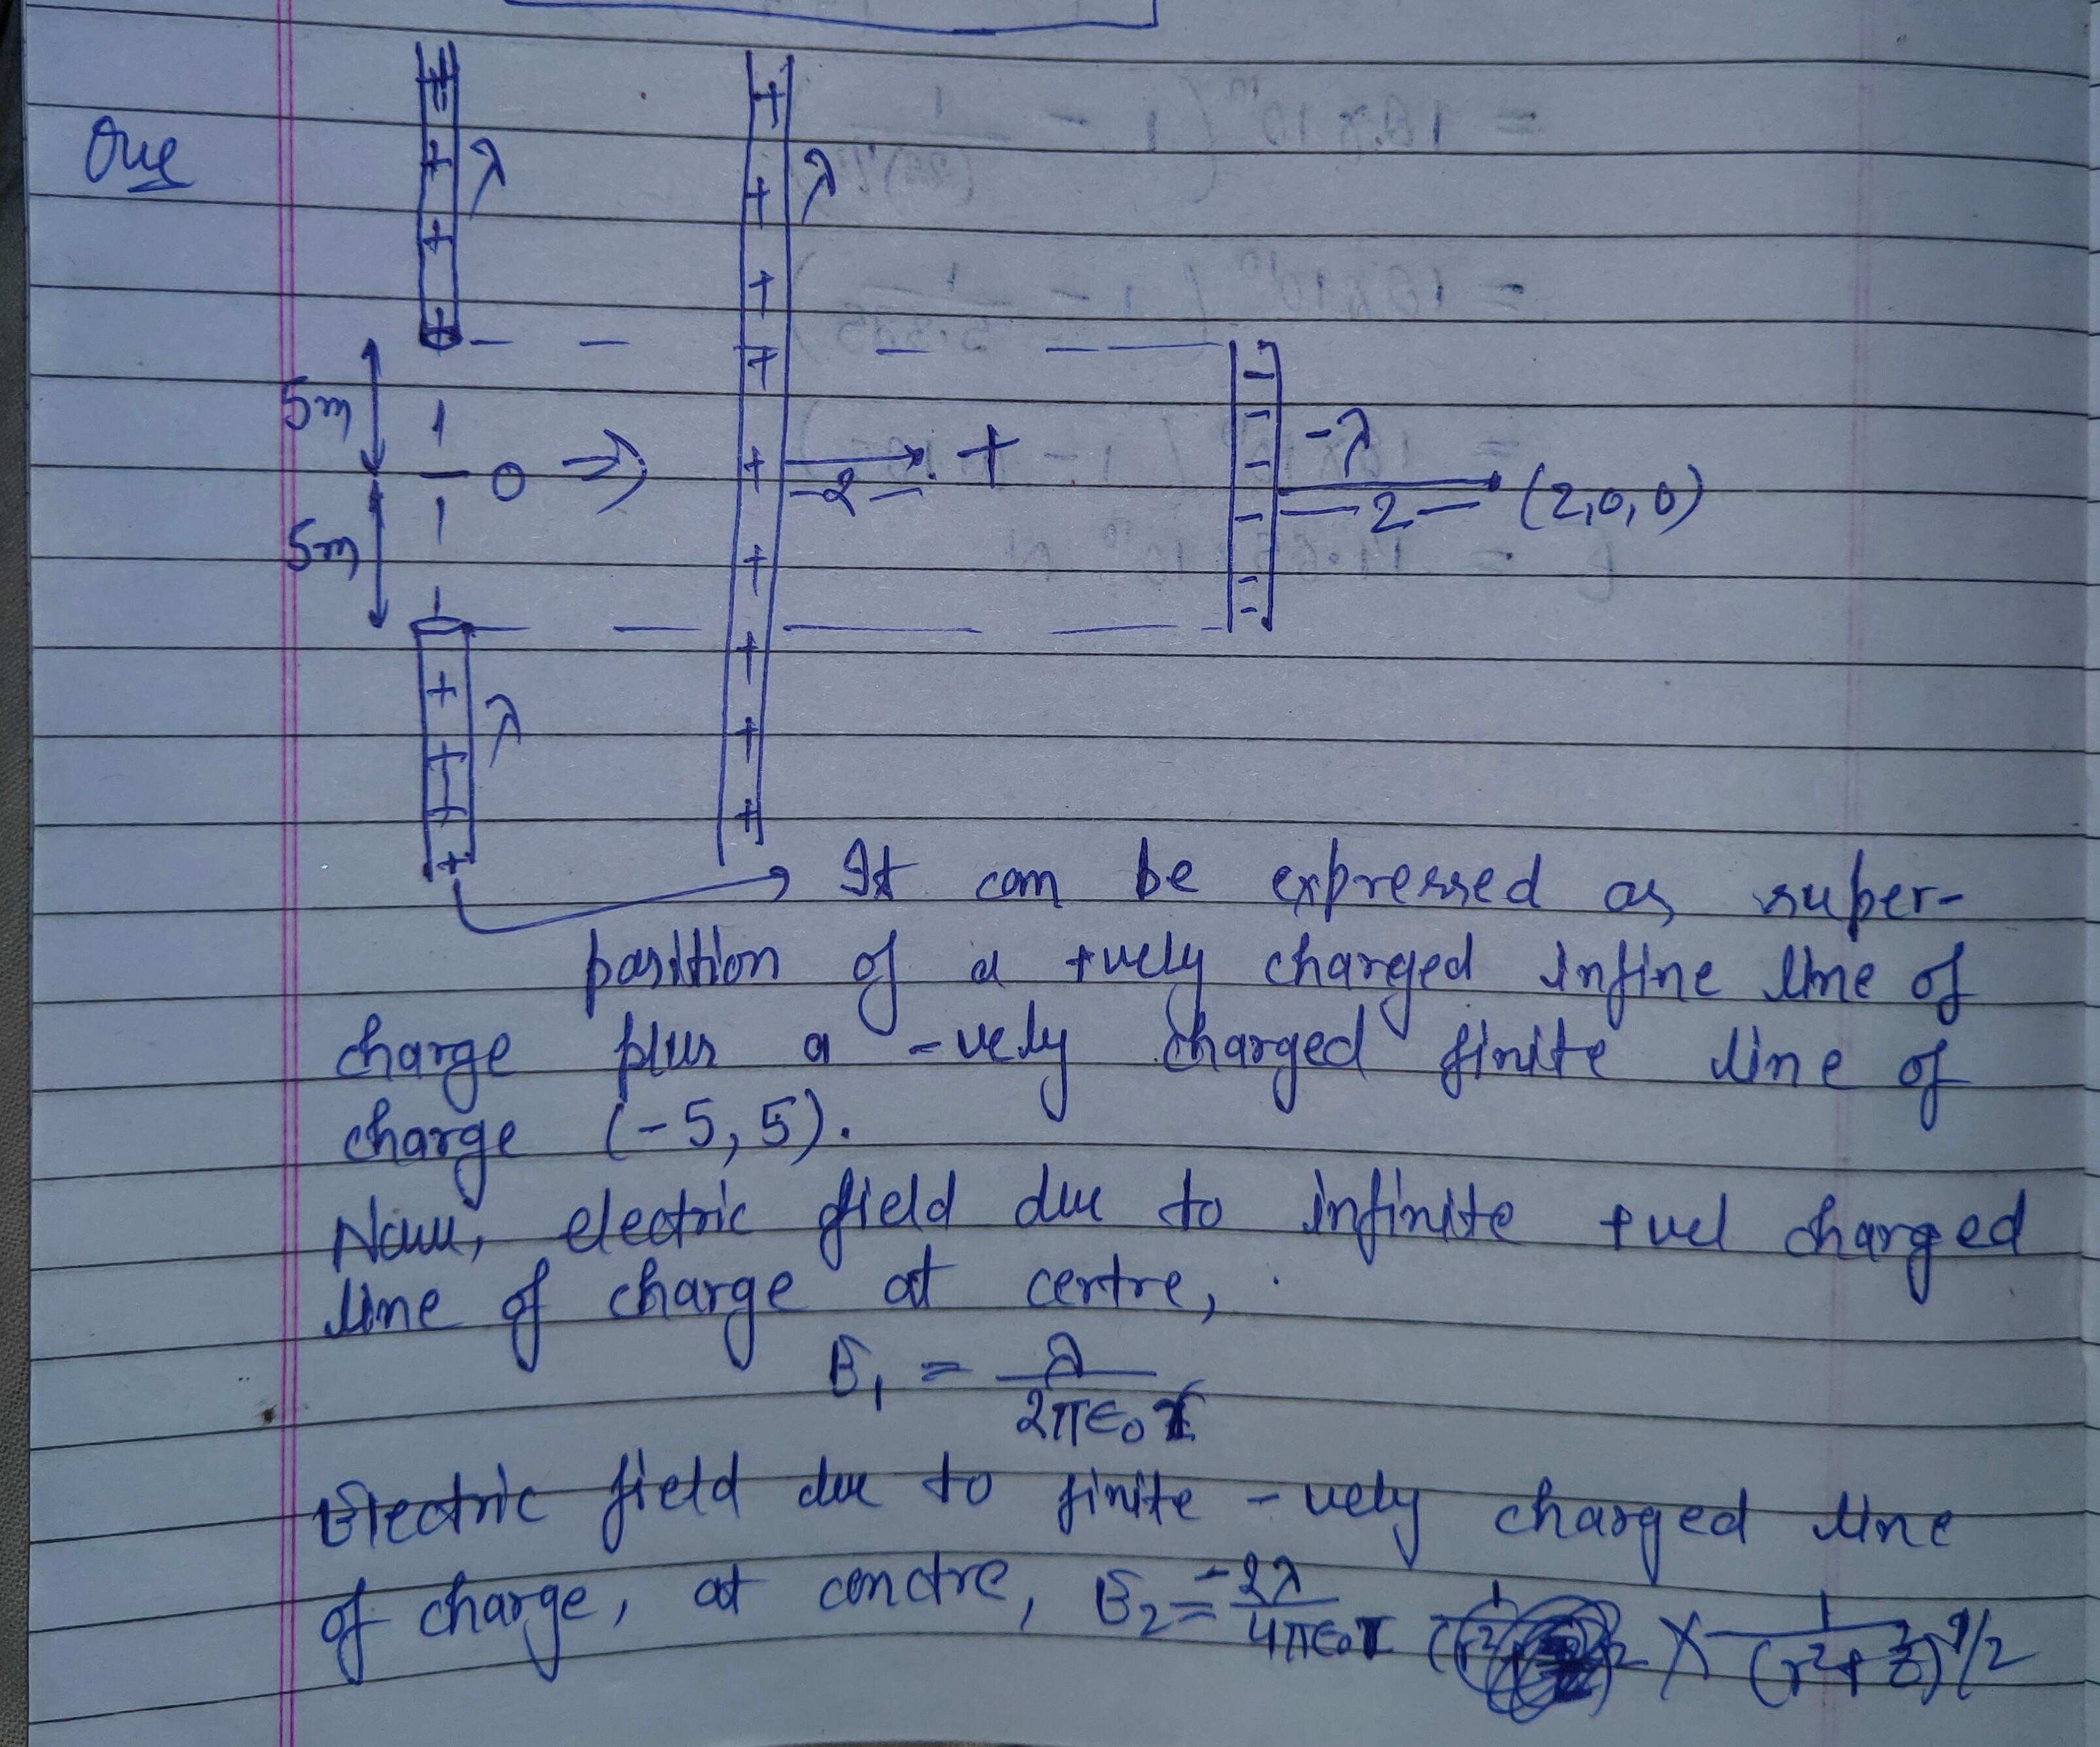 Que
λ
λ
5m
5m
O ⇒
2
+
-λ
2
(2,0,0)
λ
It can be expressed as super-
position of a +vely charged infine line of
charge plus a -vely charged finite line of
charge (-5, 5).
Now, electric field due to infinite +vel charged
line of charge at certre,
E₁ = λ / 2π∈₀r
Electric field due to finite -vely charged line
of charge, at centre, E₂ = -2λ / 4π∈₀r × 1 / (r²+